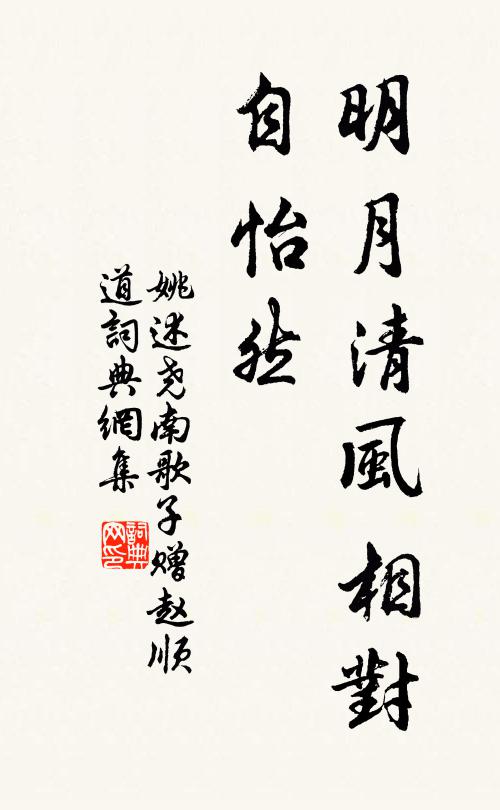 明月清風相對
自怡然
姚述尧南歌子赠赵顺
道詞典網集
詞典网印